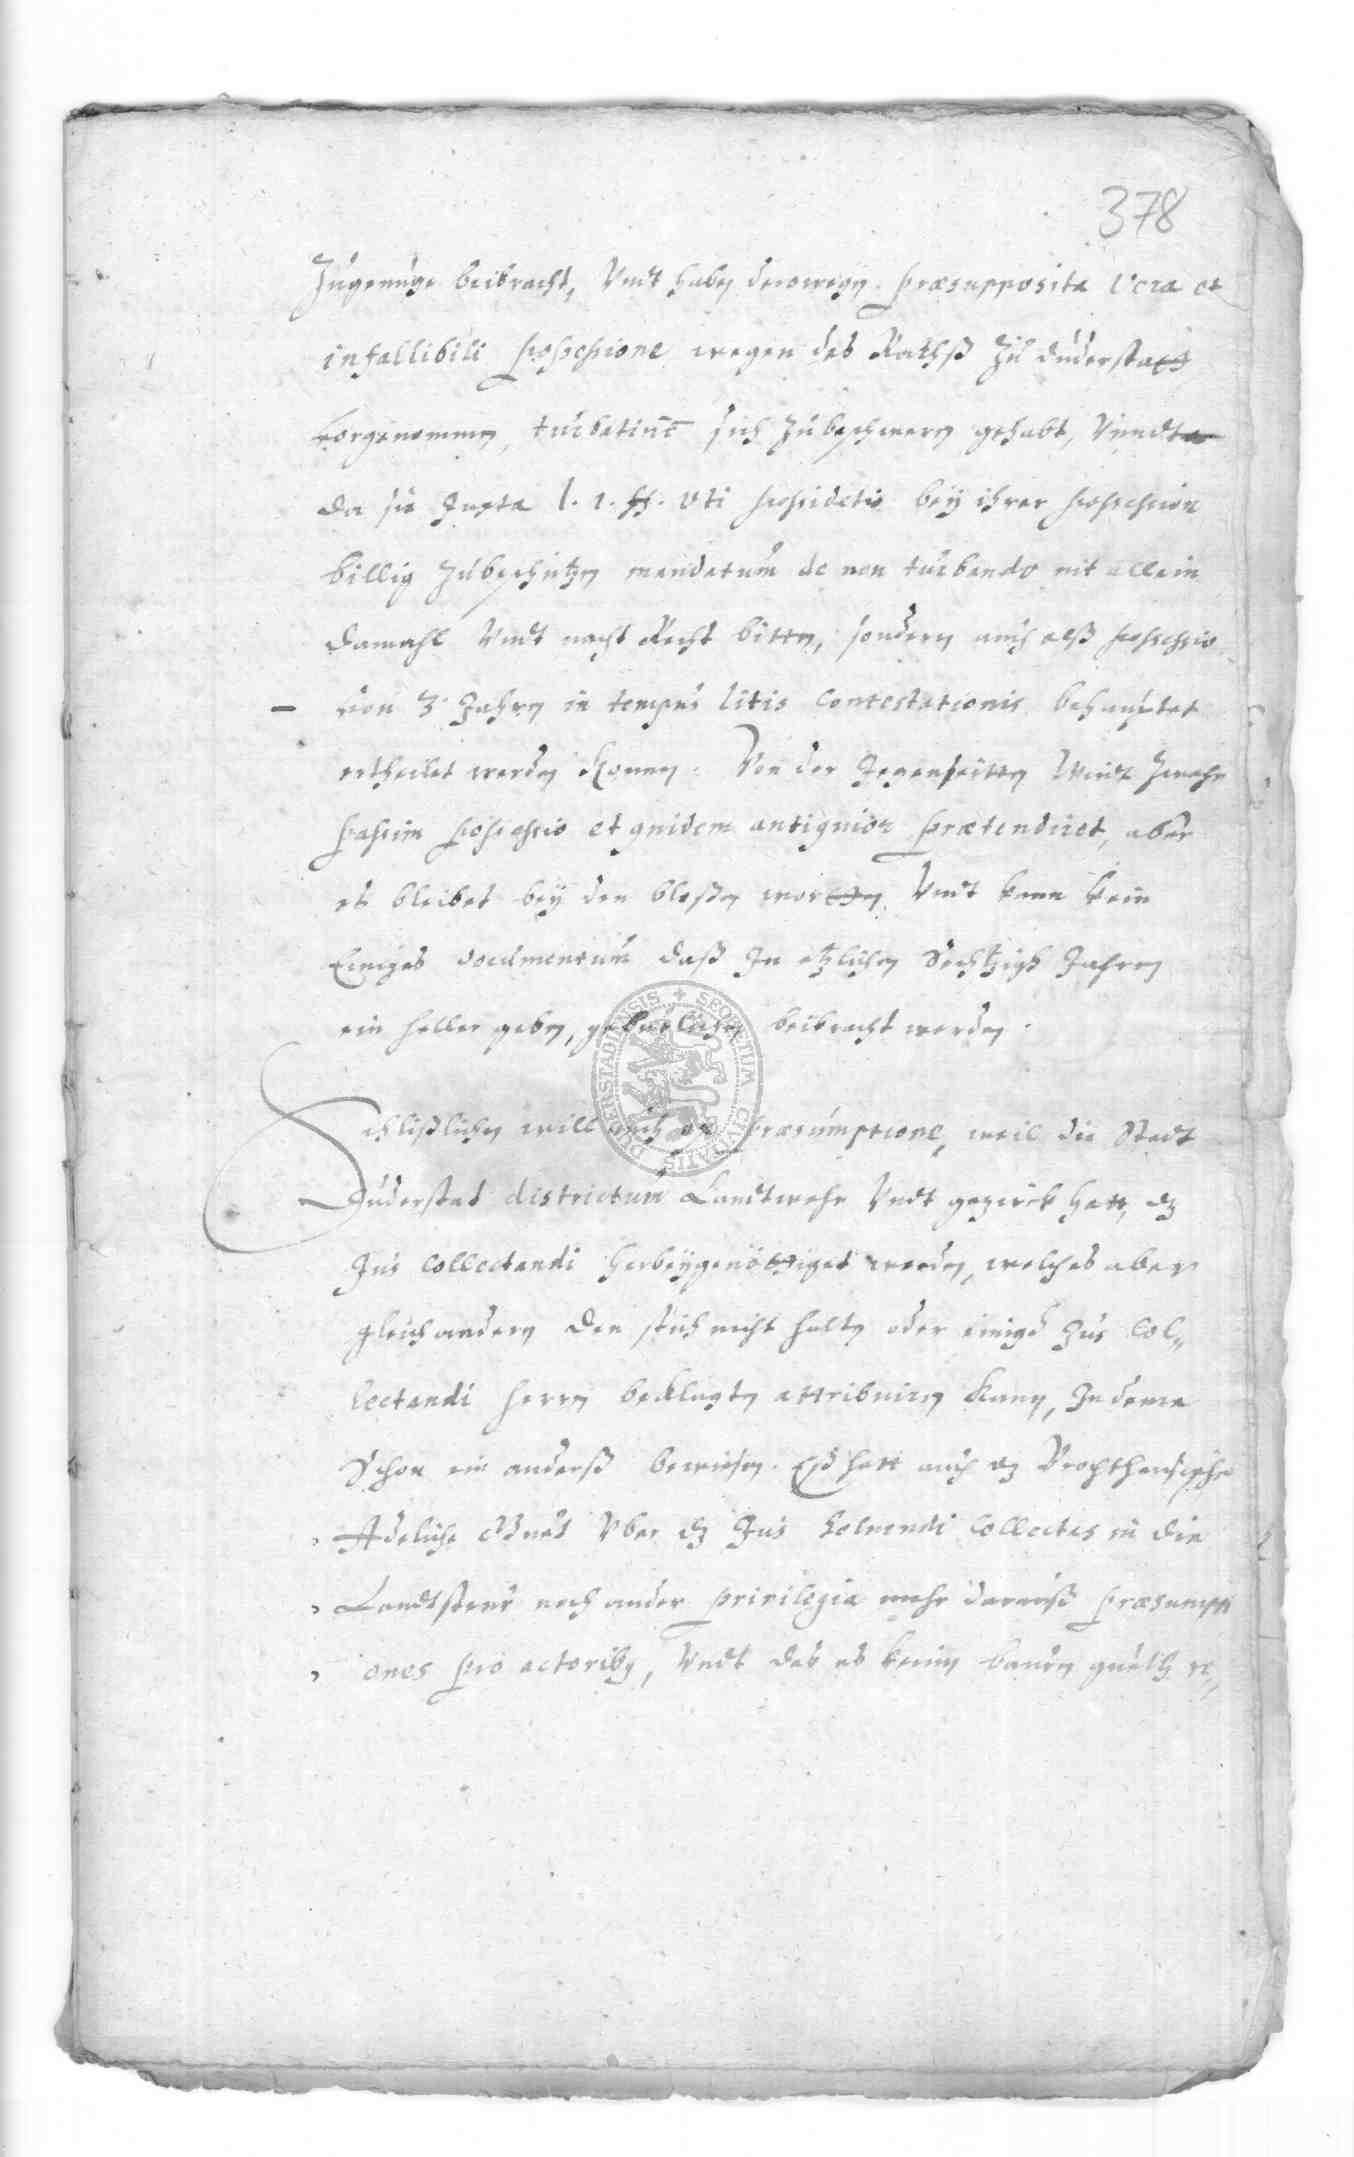 378
Zugenüge beibracht, Vndt haben derowegen præsupposita vera et
infallibili possessione wegen des Rathß zu duderstadt
vorgenommen, turbationē sich zubeschweren gehabt, Vnndt
da sie Juxta l. 1. ff. uti possidetis bey ihrer possession
billig zubeschützen mandatum de non turbando nit allein
damahl Vndt nacht Recht bitten, sondern auch alß possessio
von 3 Jahren in tempus litis contestationis behauptet
ertheilet werden können. Von der Jegenseitten Wirdt zwahr
passim possessio et quidem antiquior prætendiret, aber
es bleibet bey den bloßen wortten Vndt kann kein
Einiges documentum daß In etzlichen Sechtzigk Jahren
ein heller geben, gebürlichen beibracht werden.
Schlißlichen will auch ex præsumptione, weil die Stadt
Duderstad districtum Landtwehr Vndt gezirck hatt, dz
Jus collectandi herbeygenöttiget werden, welches aber
gleich andern den stich nicht halten oder einiges Jus col„
lectandi herrn beklagten attribuiren kann, Indeme
Schon ein anderß bewiesen. Eß hatt auch dz
Adeliche Vber dz Jus solvendi collectas in die
Landtsteur noch ander privilegia mehr darauß præsumpti
ones pro actoribus, Vndt das es keine bauren gueth